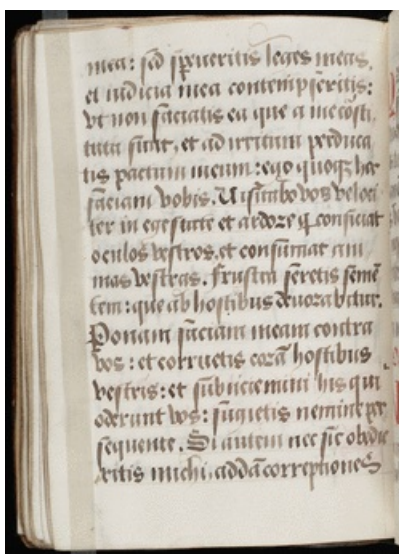 mea: sed spreueritis leges meas,
et iudicia mea contempseritis:
vt non faciatis ea que a me cōsti
tuta sunt, et ad irritum perduca
tis pactum meum: ego quoqꝫ hec
faciam vobis. Uisitabo vos veloci
ter in egestate et ardore qͥ consiciat
oculos vestros, et consumat ani
mas vestras. Frustra seretis semē
tem: que ab hostibus deuorabitur.
Ponam faciam meam contra
vos: et corruetis corā hostibus
vestris: et subiiciemini his qui
oderunt vos: fugietis nemine per
sequente. Si autem nec sic obedie
ritis michi, addā correptiones